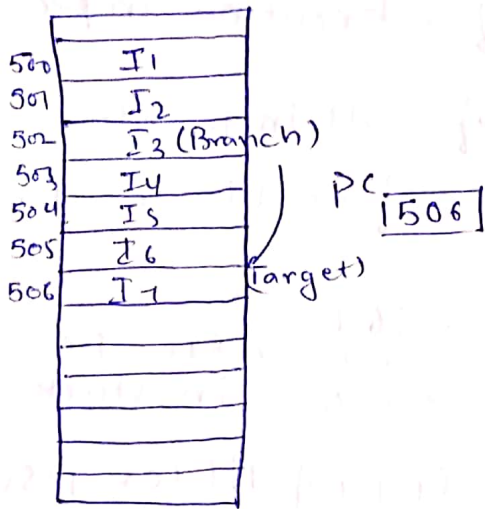 500 I1
501 I2
502 I3 (Branch)
503 I4
504 I5
505 I6
506 I7 (Target)
PC 506